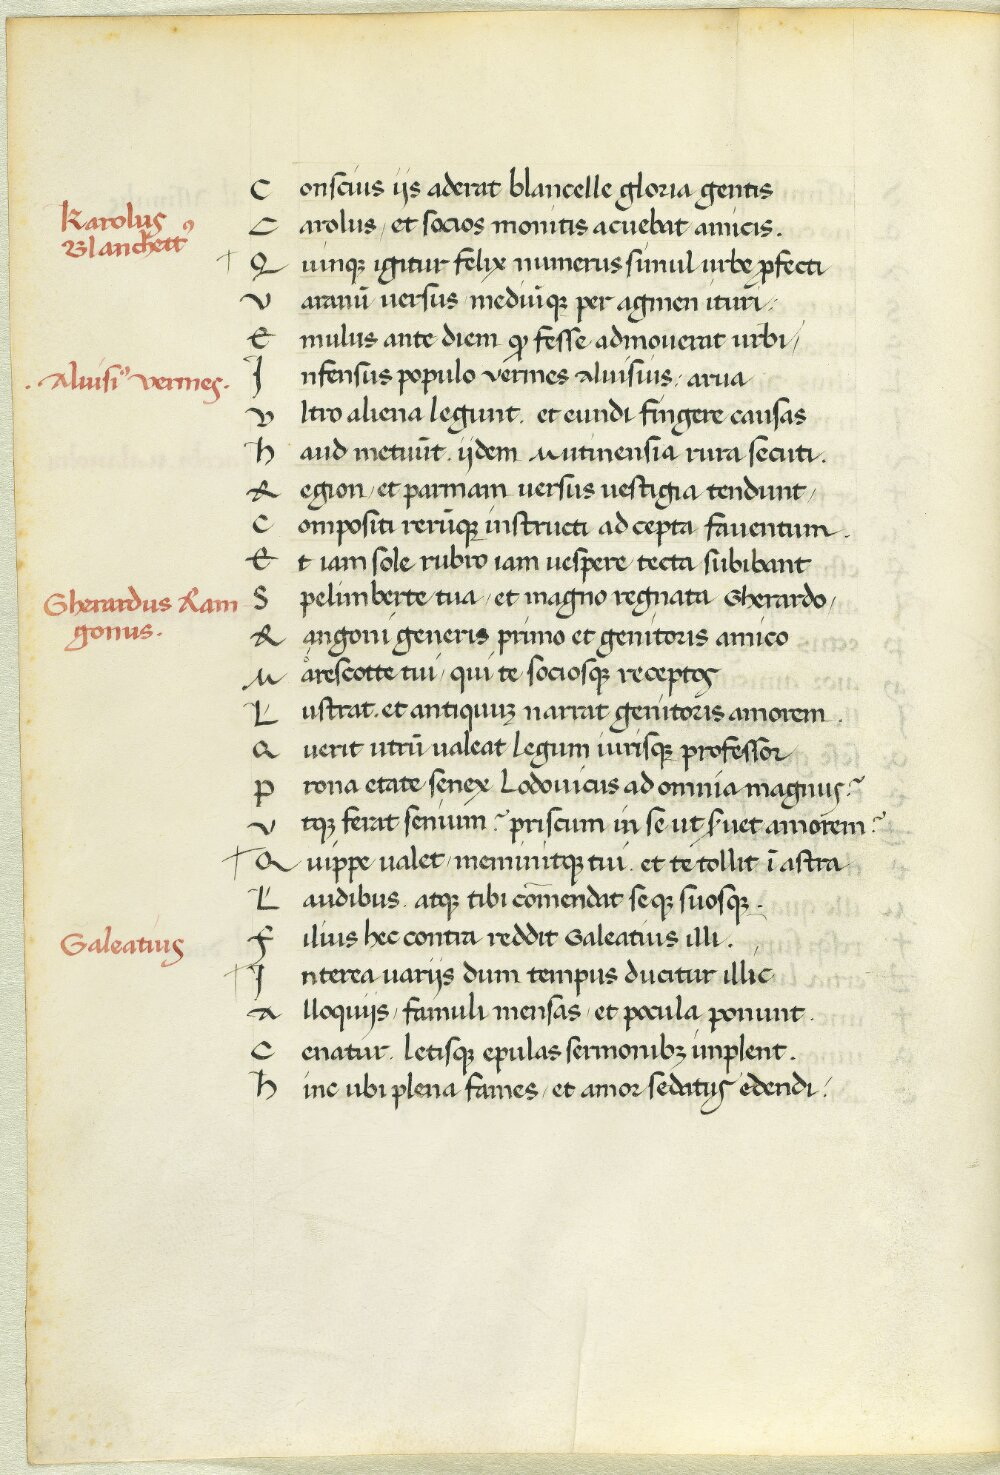 Conscius iis aderat blancelle gloria gentis
Karolus
Blanchettꝰ
Carolus / et socios monitis acuebat amicis.
Quinqꝫ igitur felix numerus simul urbe ꝓfecti
Varanū versus / mediūqꝫ per agmen ituri /.
Emulus ante diem qꝫ fesse admoverat urbi /
. Aluisiꝰ vermes.
Infensus populo vermes Aluisius / arua
Vltro aliena legunt. et eundi fingere causas
haud metuūt. iidem Mutinensia rura secuti.
Region / et parmam versus vestigia tendunt /
Compositi rerūqꝫ instructi ad cepta faventum.
Et iam sole rubro iam vespere tecta subibant
Gherardus Ran
gonus.
Spelimberte tua / et magno regnata Gherardo /
Rangoni generis primo et genitoris amico
Marescotte tui / qui te sociosqꝫ receptos
Lustrat. et antiquuꝫ narrat genitoris amorem.
Querit utrū valeat legum iurisqꝫ professor
Prona etate senex Lodovicus ad omnia magnus?
Vtqꝫ ferat senium? priscum in se ut ẜuet amorem?
Quippe valet / meminitqꝫ tui. et te tollit ī astra
Laudibus. atqꝫ tibi cōmendat seqꝫ suosqꝫ.
Galeatius
filius hec contra reddit Galeatius illi.
Interea variis dum tempus ducitur illic
Alloquiis / famuli mensas / et pocula ponunt.
Cenatur. letisqꝫ epulas sermonibꝫ implent.
hinc ubi plena fames / et amor sedatus edendi /.